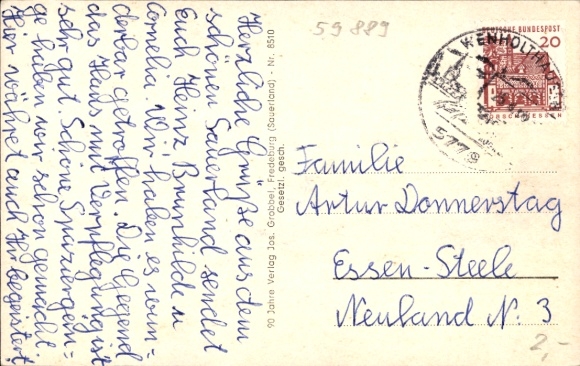 Herzliche Grüße aus dem
schönen Sauerland sendet
Euch Heinz, Brunhilde u
Cornelia. Wir haben es wun=
derbar getroffen. Die Gegend
das Haus mit Verpflegung ist
sehr gut. Schöne Spaziergän=
ge haben wir schon gemacht.
Hier wohnet auch Hg begeistert.
90 Jahre Verlag Jos. Grobbel, Fredeburg (Sauerland) - Nr. 8510
Gesetzl. gesch.
59 889
DEUTSCHE BUNDESPOST
20
LORSCH/HESSEN
577
Familie
Artur Donnerstag
Essen-Steele
Neuland N. 3
2,-